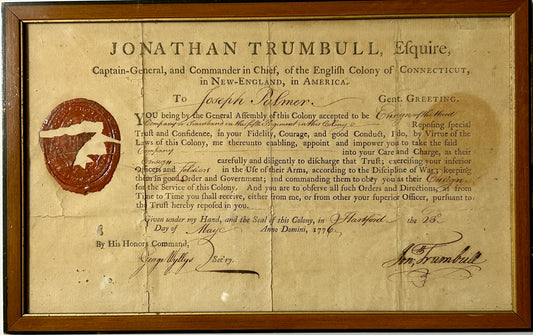 JONATHAN TRUMBULL, Esquire,
Captain-General, and Commander in Chief, of the English Colony of CONNECTICUT,
in NEW-ENGLAND, in AMERICA.
To Joseph Palmer Gent. GREETING.
YOU being by the General Assembly of this Colony accepted to be Ensign of the third
Company or Trainband in the Regiment in this Colony Reposing special
Trust and Confidence, in your Fidelity, Courage, and good Conduct, I do, by Virtue of the
Laws of this Colony, me thereunto enabling, appoint and impower you to take the said
Company into your Care and Charge, as their
Ensign carefully and diligently to discharge that Trust; exercising your inferior
Officers and Soldiers in the Use of their Arms, according to the Discipline of War; keeping
them in good Order and Government; and commanding them to obey you as their Ensign
for the Service of this Colony. And you are to observe all such Orders and Directions, as from
Time to Time you shall receive, either from me, or from other your superior Officer, pursuant to the
Trust hereby reposed in you.
Given under my Hand, and the Seal of this Colony, in Hartford the 23
Day of May Anno Domini, 1776
By His Honors Command,
George Wyllys Sec'ry.
Jon th Trumbull